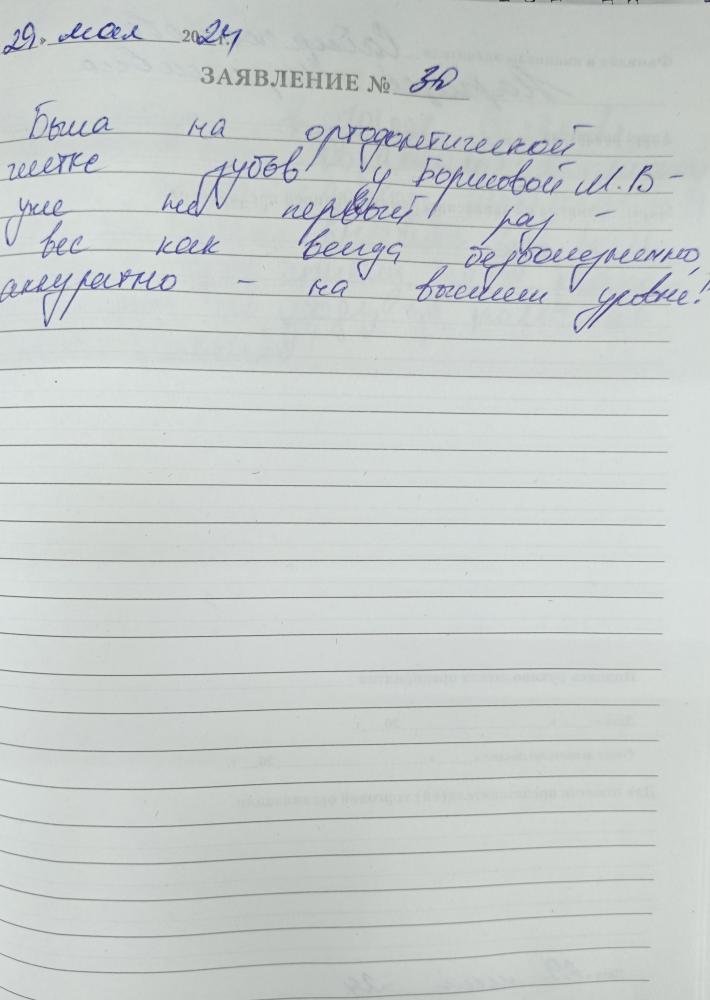 29. мая 2024 г.
ЗАЯВЛЕНИЕ № 30
Была на ортодонтической
чистке зубов у Борисовой М.В -
уже не первый раз -
все как всегда безболезненно,
аккуратно - на высшем уровне!